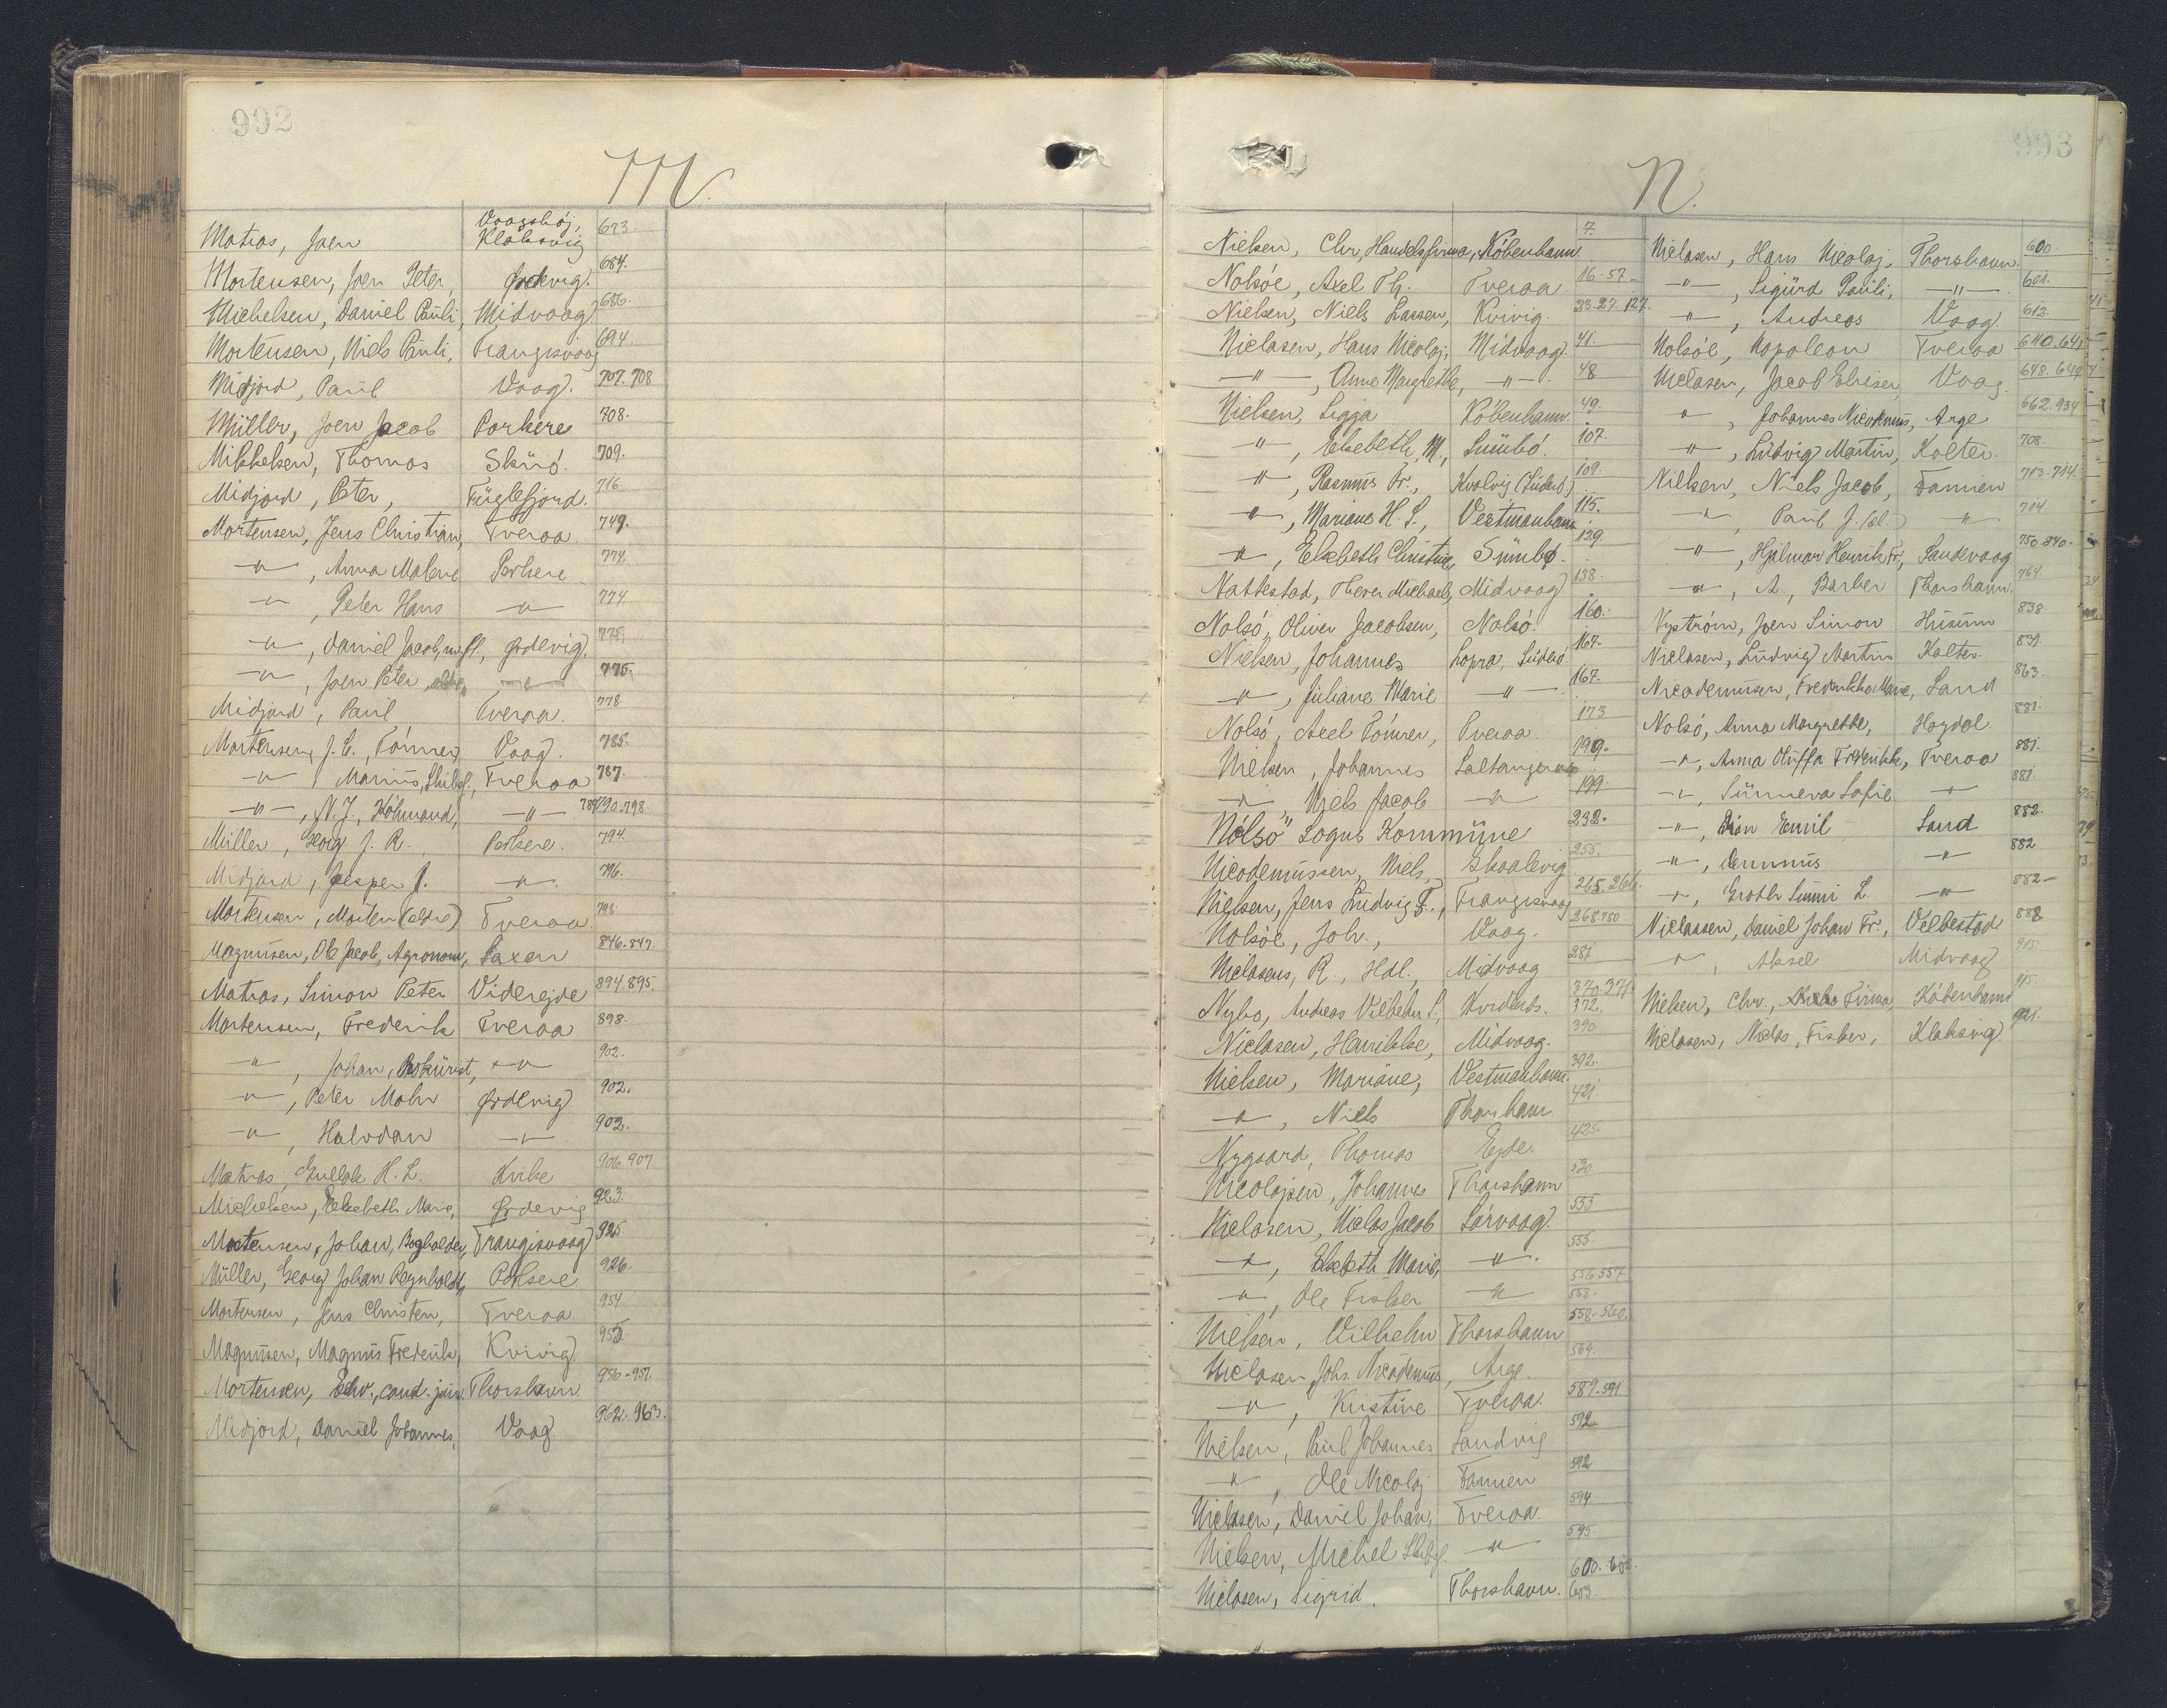 992
M.
Matras, Joen Vaagshøj, Klaksvig 673
Mortensen, Joen Peter, Ørdevig. 684.
Michelsen, Daniel Pauli, Midvaag 686.
Mortensen, Niels Pauli, Trangisvaag 694
Midjord, Paul Vaag. 707. 708
Müller, Joen Jacob Porkere 708.
Mikkelsen, Thomas Skuó. 709.
Midjord, Peter, Fuglefjord. 716
Mortensen, Jens Christian, Tveraa 749.
—"—, Anna Malene Porkere 774.
—"—, Peter Hans —"— 774.
—"—, Daniel Jacob, Ørdevig. 775.
—"—, Joen Peter, ældre, —"— 775.
Midjord, Paul Tveraa. 778
Mortensen, J. C., Tómrer, Vaag. 785.
—"—, Marius, Skibsf., Tveraa 787.
—"—, N. J., Kóbmand, —"— 789.790.798.
Müller, Georg J. R., Porkere. 794.
Midjord, Jesper J. —"— 796.
Mortensen, Morten (ældre) Tveraa 798.
Magnussen, Ole Jacob, Agronom, Saxen 846.847.
Matras, Simon Peter Viderejde 894.895.
Mortensen, Frederik Tveraa 898.
—"—, Johan, Prokurist, —"— 902.
—"—, Peter Mohr Ørdevig 902.
—"—, Halvdan —"— 902.
Matras, H. L. Kirke 906.907
Michelsen, Elsebeth Marie, Ørdevig 923.
Mortensen, Johan, Bogholder, Trangisvaag 925
Müller, Georg Johan Reynholdt, Porkere 926.
Mortensen, Jens Christen, Tveraa 954.
Magnussen, Magnus Frederik, Kvivig. 955.
Mortensen, Edw., cand. jur. Thorshavn 956-957.
Midjord, Daniel Johannes, Vaag 962. 963.
993
N.
Nielsen, Chr, Handelsfirma, Kóbenhavn 7.
Nolsóe, Axel Th. Tveraa 16-57
Nielsen, Niels Lassen, Kvivig. 23.27.127.
Niclasen, Hans Nicolaj, Midvaag. 41
—"—, Anne Margrethe, —"— 48
Nielsen, Sigga Kóbenhavn. 49.
—"—, Elsebeth, M., Sumbó. 107
—"—, Rasmus Fr., Kvalvig (Suderó) 109.
—"—, Mariane H. S., Vestmanhavn 115.
—"—, Elsebeth Christine, Sumbó. 129
Nattestad, Michael, Midvaag 138.
Nolsó, Oliver Jacobsen, Nolsó. 160.
Nielsen, Johannes Lopra, Suderó. 167.
—"—, Juliane Marie —"— 167.
Nolsó, Axel Tómrer, Tveraa 173
Nielsen, Johannes Saltangeraa 199.
—"—, Niels Jacob —"— 199
"Nólsó" Sogns Kommune 232.
Nicodemussen, Niels, Skaalevig 255.
Nielsen, Jens Ludvig F., Trangisvaag 265.266.
Nolsóe, Joh., Vaag. 268.750.
Niclasens, R., Hdl., Midvaag 281
Nybo, Andreas Vilhelm S., Hvidenæs. 370.371. 372.
Niclasen, Henrikke, Midvaag. 390
Nielsen, Mariane, Vestmanhavn. 392.
—"—, Niels Thorshavn 421
Nygaard, Thomas Ejde. 425.
Nicolajsen, Johannes Thorshavn 530
Niclasen, Niclas Jacob Sórvaag. 555
—"—, Elsebeth Marie, —"— 555.
—"—, Ole Fisker —"— 556.557 558.
Nielsen, Vilhelm Thorshavn 558-560.
Niclasen, Johs. Nicodemus, Arge. 569.
—"—, Kristine Tveraa. 589.591
Nielsen, Paul Johannes Sandvig 592
—"—, Ole Nicolaj Famien 592
Niclasen, Daniel Johan, Tveraa. 594
Nielsen, Michel Skibsf. —"— 595.
Niclasen, Sigrid. Thorshavn. 600.602. 603.
Niclasen, Hans Nicolaj, Thorshavn. 600.
—"—, Sigurd Pauli, —"— 601.
—"—, Andreas Vaag. 613.
Nolsóe, Napoleon Tveraa 640.641
Niclasen, Jacob Elieser, Vaag 648.649
—"—, Johannes Nicodemus, Arge 662.934
—"—, Ludvig Martin, Kolter. 708.
Nielsen, Niels Jacob, Famien 713-714.
—"—, Paul J. —"— 714.
—"—, Hjalmar Henrik Fr., Sandevaag 750.840.
—"—, A., Barber Thorshavn. 764.
Nystróm, Joen Simon Husum 838.
Niclasen, Ludvig Martin Kolter. 839
Nicodemusen, Frederikka Marie, Sand 863.
Nolsó, Anna Margrethe, Hoydal 881.
—"—, Anna Oluffa Frederikke, Tveraa 881.
—"—, Sunneva Sofie —"— 881.
—"—, Dion Emil Sand 882.
—"—, —"— 882
—"—, —"— 882
Niclassen, Daniel Johan Fr., Velbestad 888
—"—, Aksel Midvaag 915
Nielsen, Chr., Firma, Kóbenhavn 915.
Niclasen, Niclas, Fisker, Klaksvig. 921.